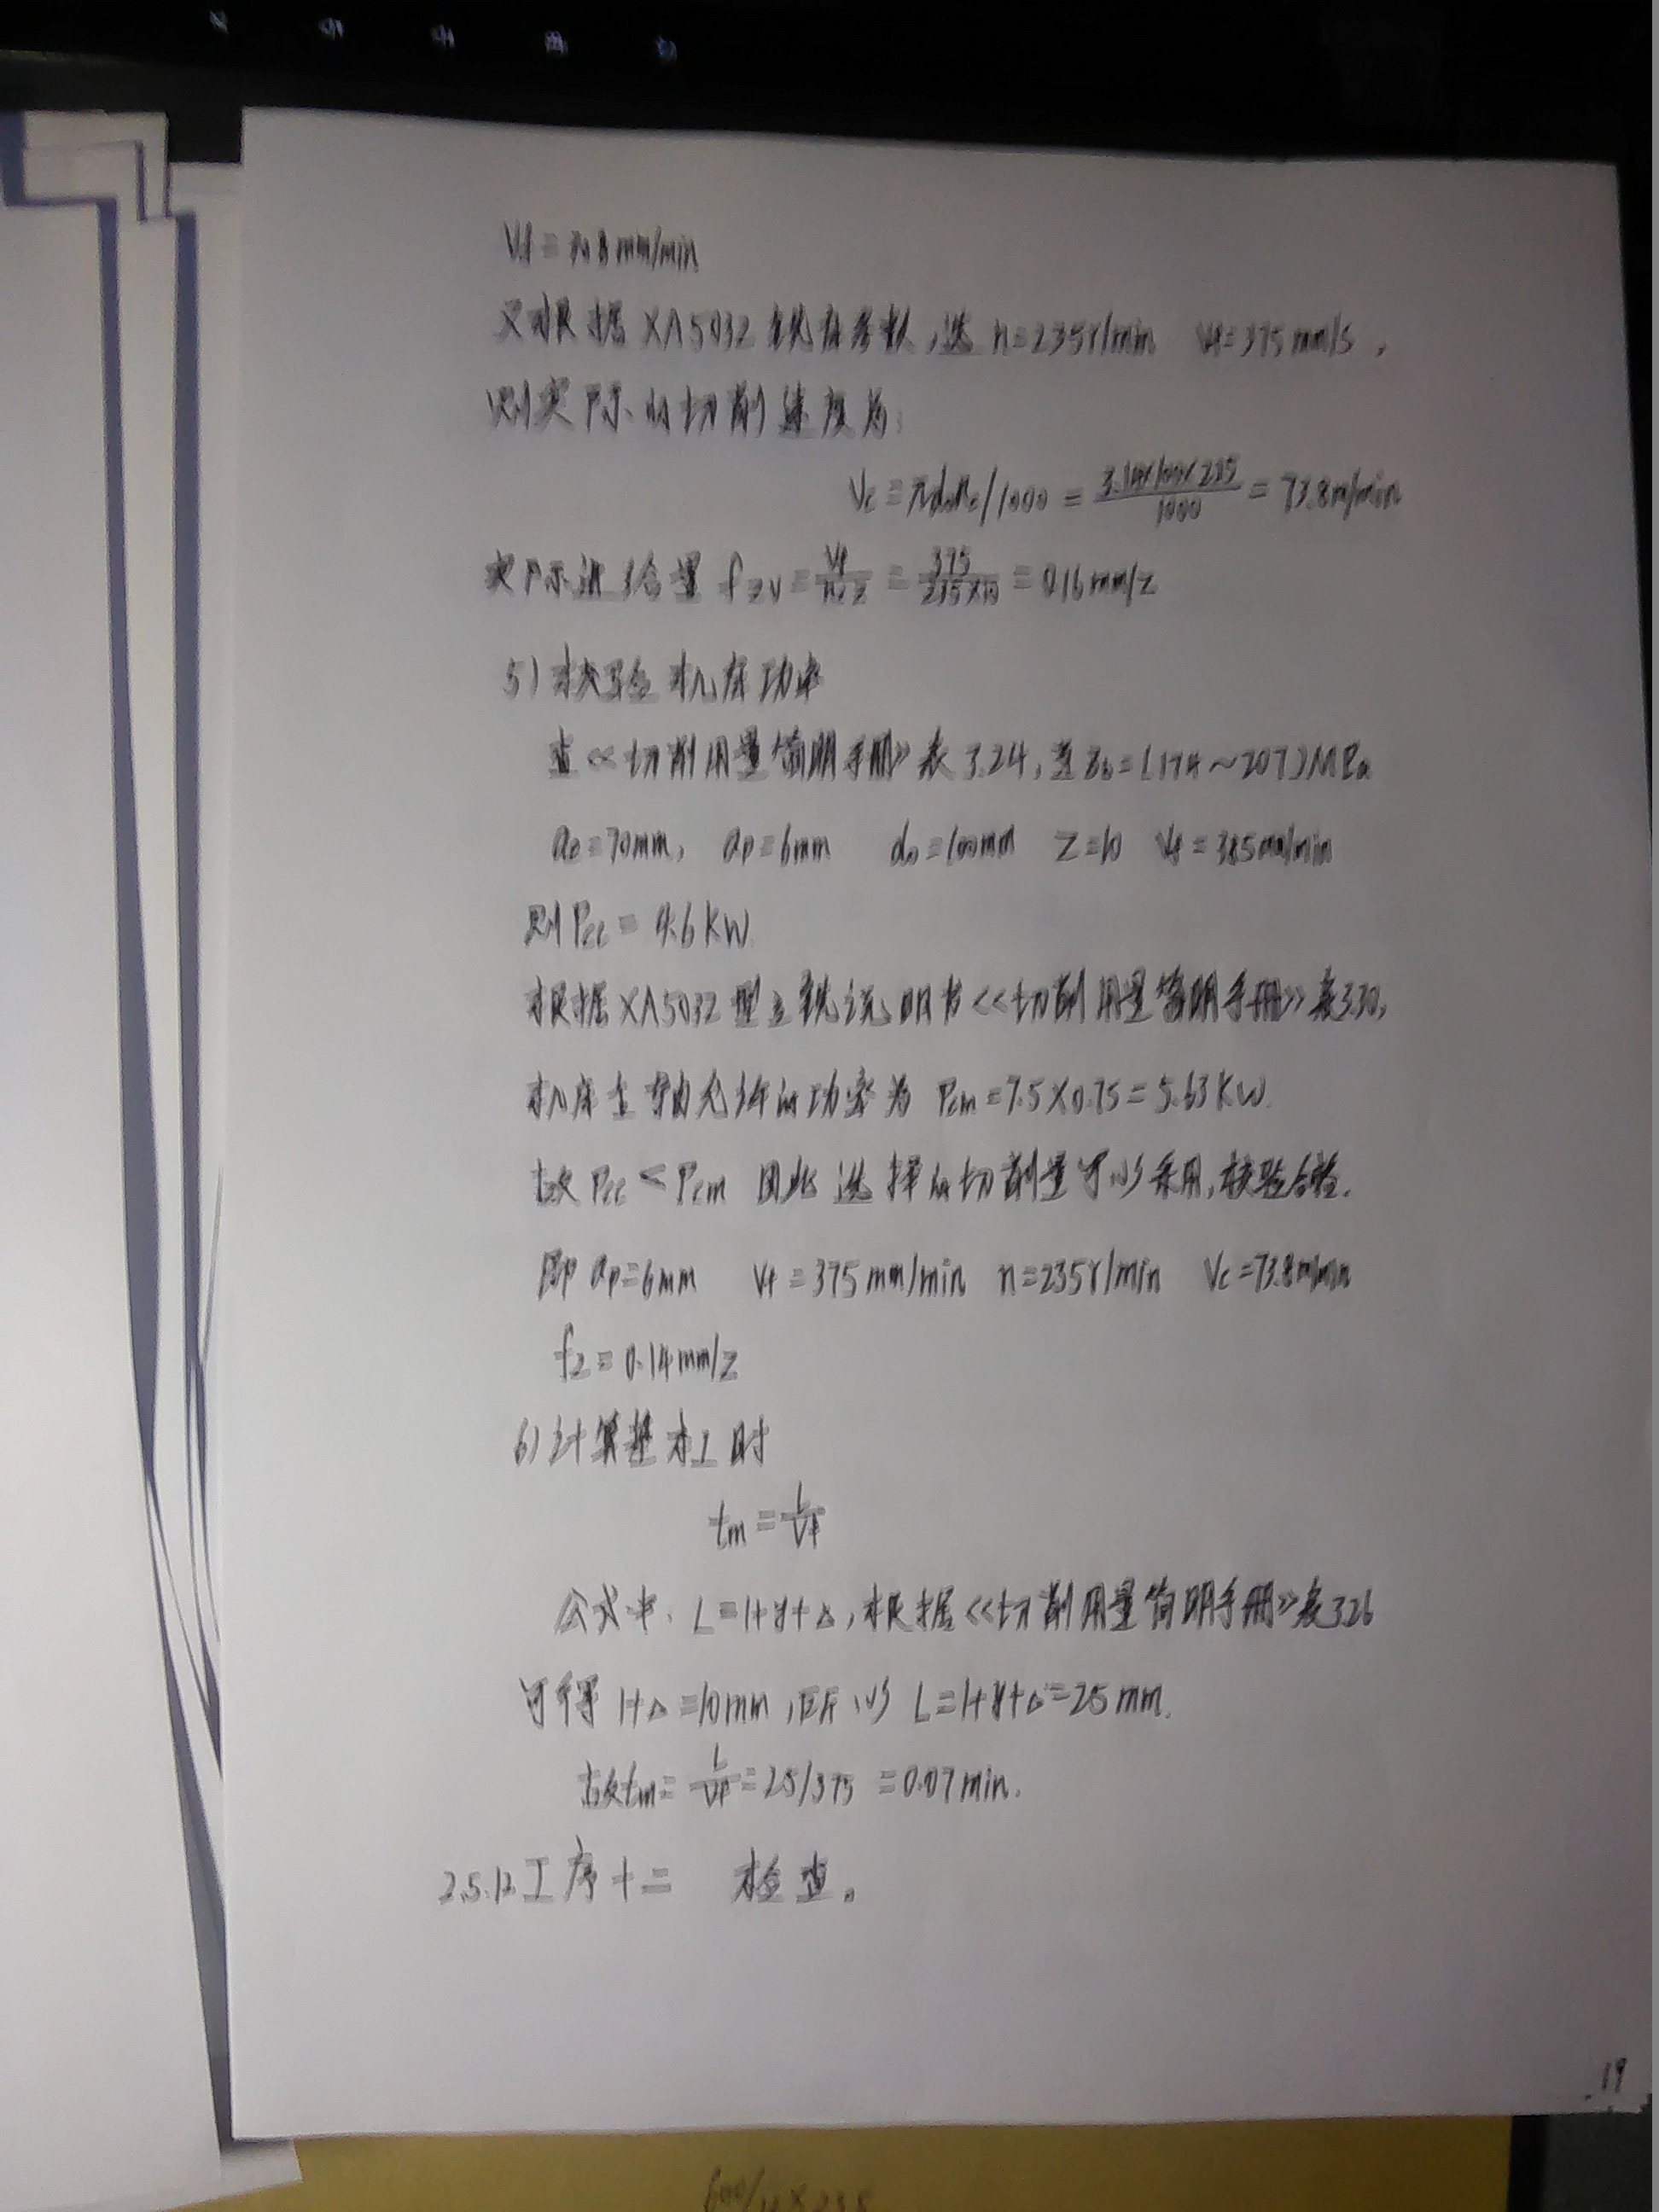 mm/min
又根据 XA5032 铣床参数,选 n=235r/min Vf=375mm/s,
则实际的切削速度为:
Vc=πd₀nc/1000=3.14×100×235/1000=73.8m/min
实际进给量 fzv=Vf/ncz=375/235×10=0.16mm/z
5)校验机床功率
查《切削用量简明手册》表3.24,当σb=(174~207)MPa
ae=70mm, ap=6mm d₀=100mm Z=10 Vf=385mm/min
则Pcc=4.6KW
根据XA5032型立铣说明书《切削用量简明手册》表3.30,
机床主轴允许的功率为 Pcm=7.5×0.75=5.63KW.
故Pcc<Pcm 因此选择的切削量可以采用,校验合格.
即ap=6mm Vf=375mm/min n=235r/min Vc=73.8m/min
fz=0.14mm/z
6)计算基本工时
tm=L/Vf
公式中、L=l+y+Δ,根据《切削用量简明手册》表3.26
可得 l+Δ=10mm,所以 L=l+y+Δ=25mm.
故tm=L/Vf=25/375=0.07min.
2.5.12工序十二 检查。
19